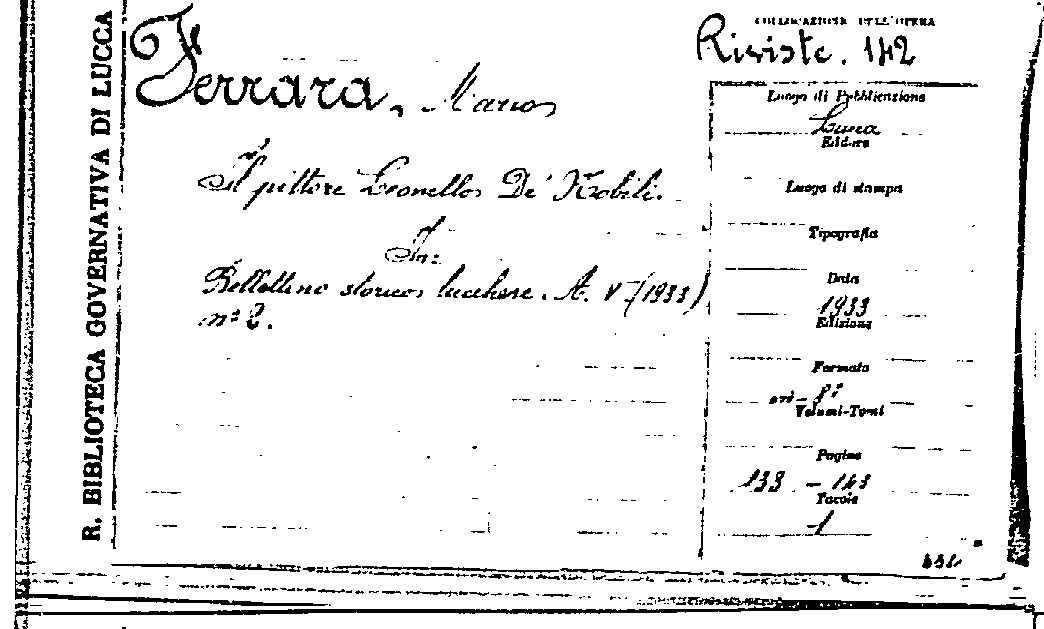 R. BIBLIOTECA GOVERNATIVA DI LUCCA
Ferrara, Mario
Il pittore Leonello De' Nobili.
In:
Bollettino storico lucchese. A. V (1933)
nº 2.
COLLOCAZIONE DELL'OPERA
Riviste. 142
Luogo di Pubblicazione
Lucca
Editore
Luogo di stampa
Tipografia
Data
1933
Edizione
Formato
Volumi-Tomi
Pagine
133 - 143
Tavole
1